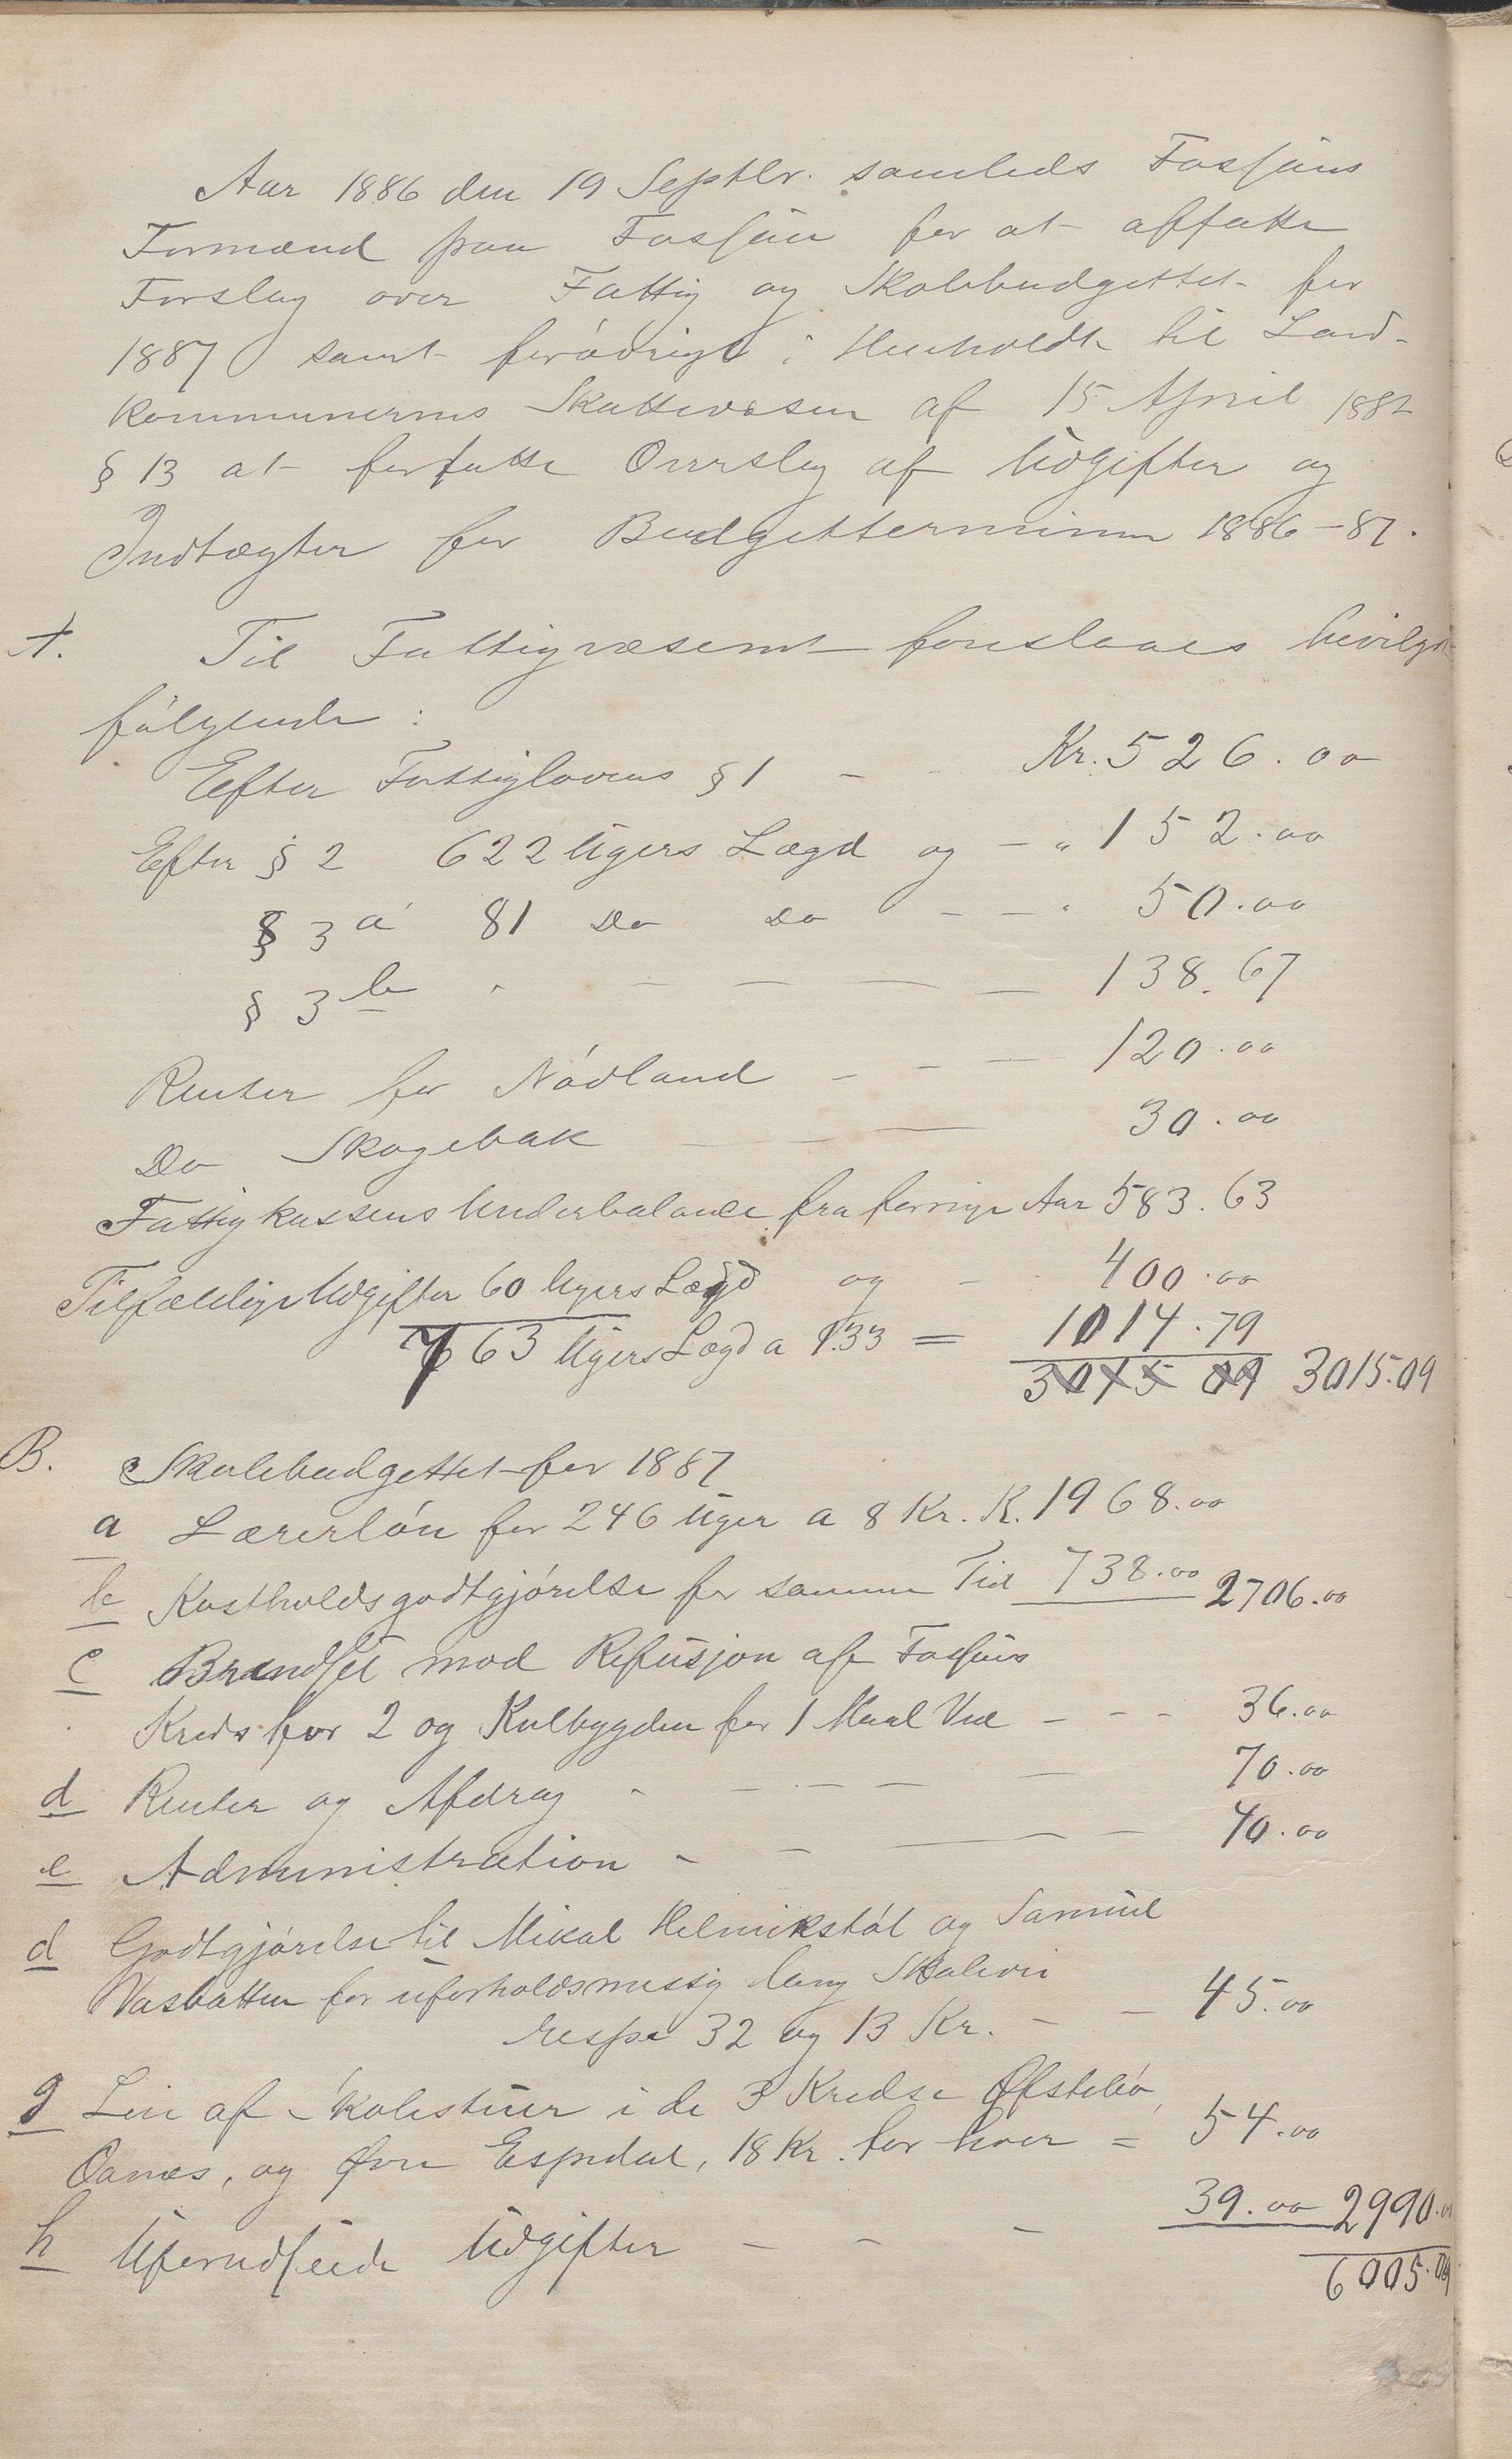 Aar 1886 den 19 Septbr. samleds Fossans
Formænd paa Fossan for at affatte
Forslag over Fattig og Skolebudgettet for
1887 samt forövrigt i Henholdt til Land-
kommunernes Skattevæsen af 15 April 1882
§ 13 at forfatte Overslag af Udgifter og
Indtægter for Budgetterminen 1886-87.
A. Til Fattigvæsenet foreslaaes bevilget
fölgende:
Efter Fattiglovens § 1 - - Kr. 526.00
Efter § 2 622 Ugers Lægd og - " 152.00
§ 3 a 81 Do Do - - " 50.00
§ 3 b " - - - - 138.67
Renter for Nödland - - - 120.00
Do Skogebak - - - 30.00
Fattigkassens Underbalance fra forrige Aar 583.63
Tilfældige Udgifter 60 Ugers Lægd og - - 400.00
763 Ugers Lægd a 1.33 = 1014.79
3015 09 3015.09
B. Skolebudgettet for 1887
a Lærerlön for 246 Uger a 8 Kr. K. 1968.00
b Kostholdsgodtgjörelse for samme Tid 738.00 2706.00
c Brændsel mod Refusjon af Fossans
Kreds for 2 og Kulbygden for 1 Maal Ved - - - 36.00
d Renter og Afdrag - - - - - 70.00
e Administration - - - - 40.00
d Godtgjörelse til Mikal Helmikstöl og Samuel
Vasbotten for uforholdsmessig lang Skolevei
respe 32 og 13 Kr. - - 45.00
g Leie af Skolestuer i de 3 Kredse Øfstebö,
Oanes, og Øvre Espedal, 18 Kr. for hver = 54.00
h Uforudseede Udgifter - - - 39.00 2990.00
6005.09